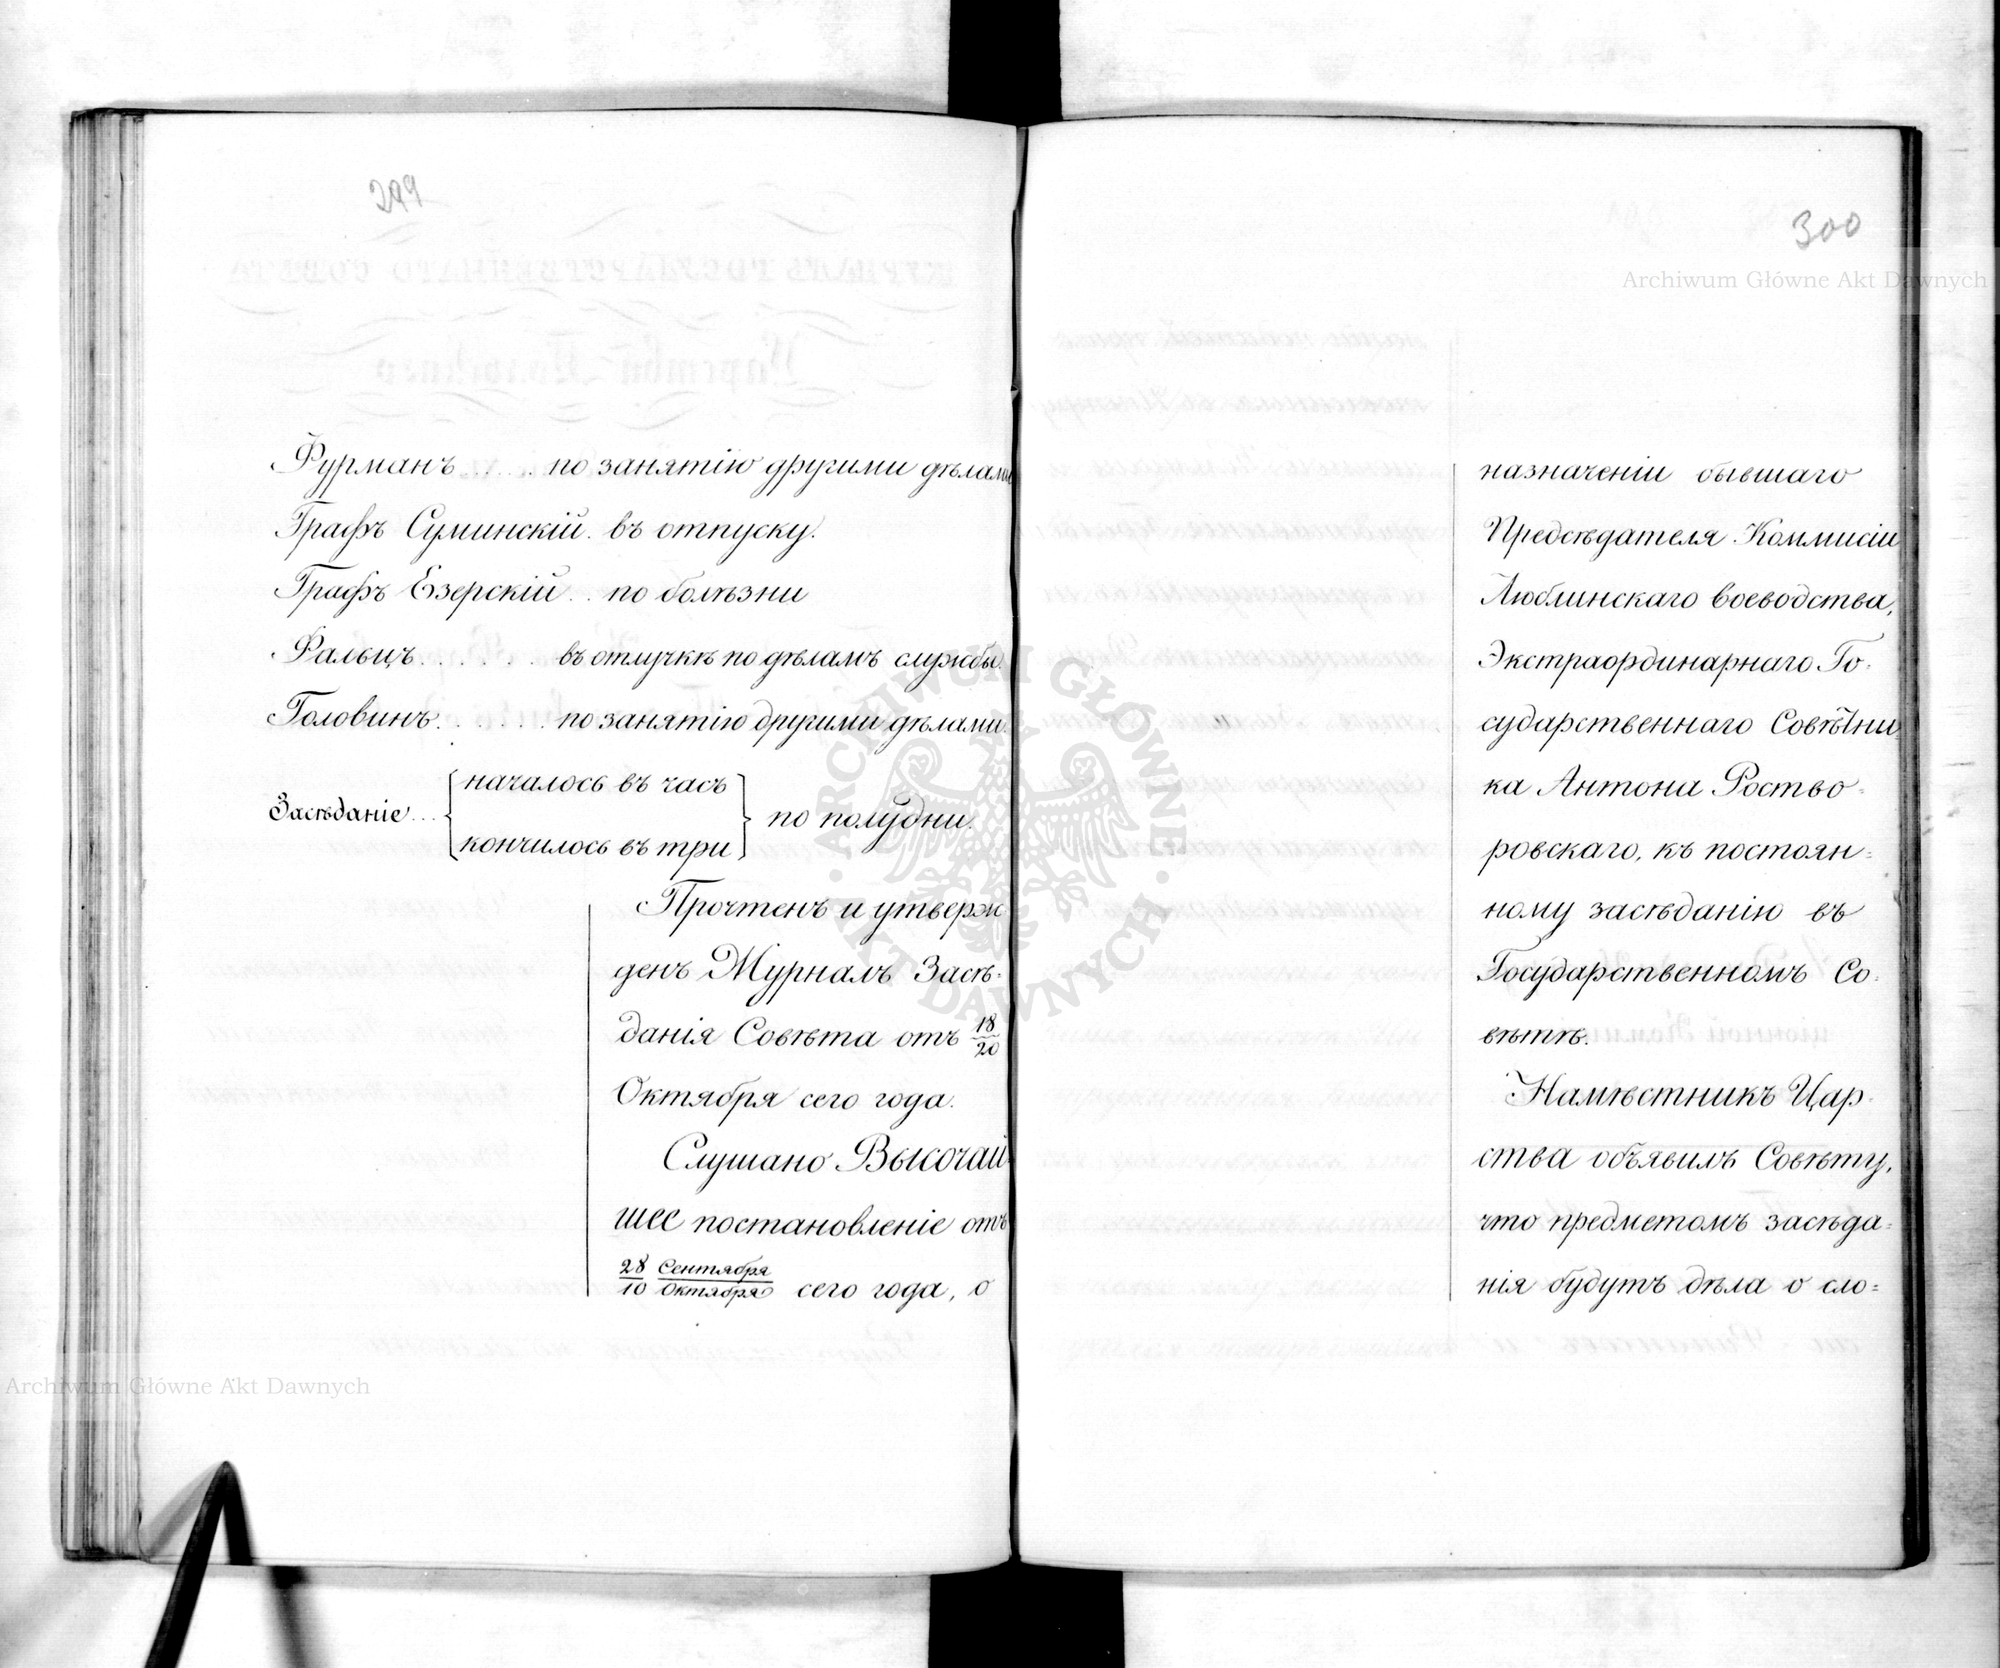 299
Фурманъ . . . . . по занятію другими дѣлами
Графъ Суминскій . въ отпуску.
Графъ Езерскій . . по болѣзни
Фальцъ . . . . . . въ отлучкѣ по дѣламъ службы.
Головинъ . . . . . . по занятію другими дѣлами.
началось въ часъ
Засѣданіе . . . по полудни.
кончилось въ три
Прочтенъ и утверж
денъ Журналъ Засѣ-
данія Совѣта отъ 18/20
Октября сего года.
Слушано Высочай-
шее постановленіе отъ
28 Сентября / 10 Октября сего года, о
300
назначеніи бывшаго
Предсѣдателя Коммисіи
Люблинскаго воеводства,
Экстраординарнаго Го-
сударственнаго Совѣтни-
ка Антона Роство-
ровскаго, къ постоян-
ному засѣданію въ
Государственномъ Со-
вѣтѣ.
Намѣстникъ Цар-
ства объявилъ Совѣту,
что предметомъ засѣда-
нія будутъ дѣла о сло-
Archiwum Główne Akt Dawnych
Archiwum Główne Akt Dawnych
ARCHIWUM GŁÓWNE AKT DAWNYCH